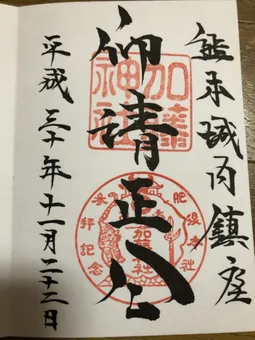 熊本城内鎮座
仰清正公
平成三十年十一月二十三日
加藤神社
加藤神社
参拝記念